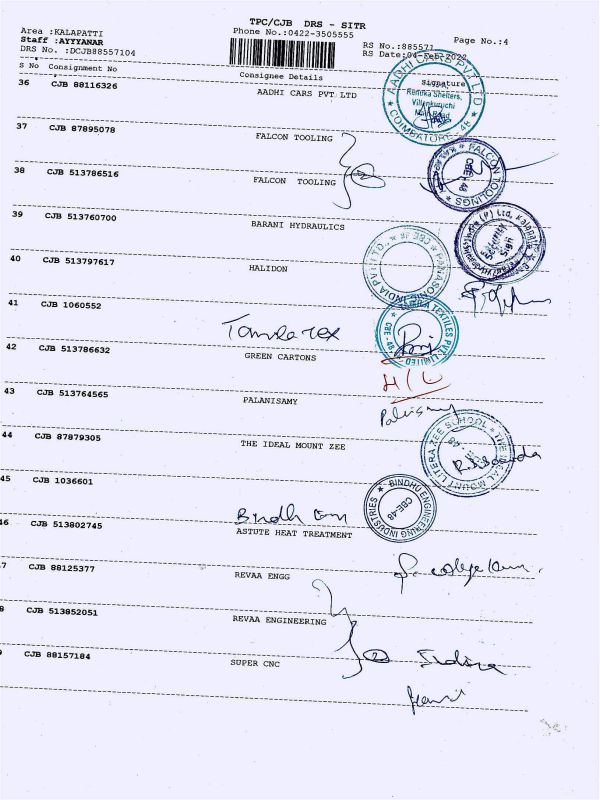 TPC/CJB DRS - SITR
Area :KALAPATTI
Phone No.:0422-3505555
Staff :AYYYANAR
RS No.:885571
Page No.:4
DRS No. :DCJB88557104
RS Date:04-Feb-2022
S No Consignment No
Consignee Details
Signature
36 CJB 88116326
AADHI CARS PVT LTD
AADHI CARS PVT LTD
COIMBATORE - 48
37 CJB 87895078
FALCON TOOLING
FALCON TOOLINGS
CBE-48
38 CJB 513786516
FALCON TOOLING
39 CJB 513760700
BARANI HYDRAULICS
Security
Sign
40 CJB 513797617
HALIDON
INDIA PVT LTD.,
41 CJB 1060552
TEXTILES PVT. LIMITED
CBE - 48
42 CJB 513786632
GREEN CARTONS
H/C
43 CJB 513764565
PALANISAMY
Palanisamy
44 CJB 87879305
THE IDEAL MOUNT ZEE
THE IDEAL MOUNT LITERA ZEE SCHOOL
45 CJB 1036601
BINDHU ENGINEERING INDUSTRIES
CBE-48
46 CJB 513802745
ASTUTE HEAT TREATMENT
7 CJB 88125377
REVAA ENGG
8 CJB 513852051
REVAA ENGINEERING
9 CJB 88157184
SUPER CNC